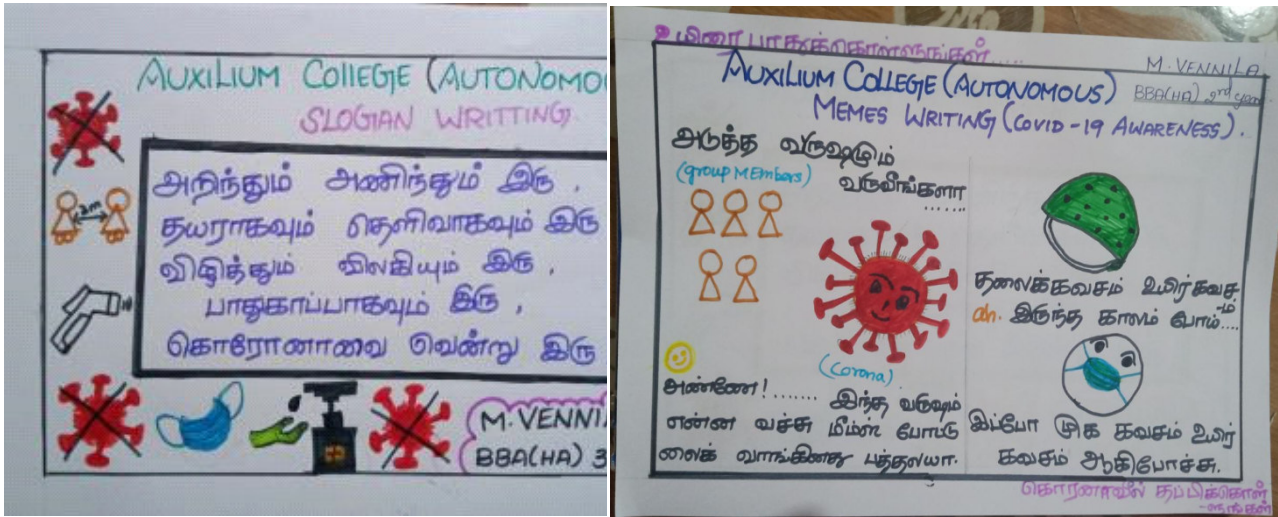 AUXILIUM COLLEGE (AUTONOMOU
SLOGIAN WRITTING
அறிந்தும் அணிந்தும் இரு .
தயராகவும் தெளிவாகவும் இரு
விழித்தும் விலகியும் இரு .
பாதுகாப்பாகவும் இரு ,
கொரோனாவை வென்று இரு
2m
M. VENNI
BBA(HA) 3
உயிரை பாதுக்கொள்ளுங்கள்.....
M. VENNILA
BBA(HA) 2nd year
AUXILIUM COLLEGE (AUTONOMOUS)
MEMES WRITING (COVID -19 AWARENESS) .
அடுத்த வருஷமும்
(group MEmbers)
வருவீங்களா
.......
(corona)
அண்ணே! ....... இந்த வருஷம்
என்ன வச்சு மீம்ஸ் போட்டு
லைக் வாங்கினது பத்தலயா.
தலைக்கவசம் உயிர்கவச
-ம்
ah. இருந்த காலம் போய்....
இப்போ முக கவசம் உயிர்
கவசம் ஆகிபோச்சு.
கொரனாவில் தப்பிக்கொள்
-ளுங்கள்